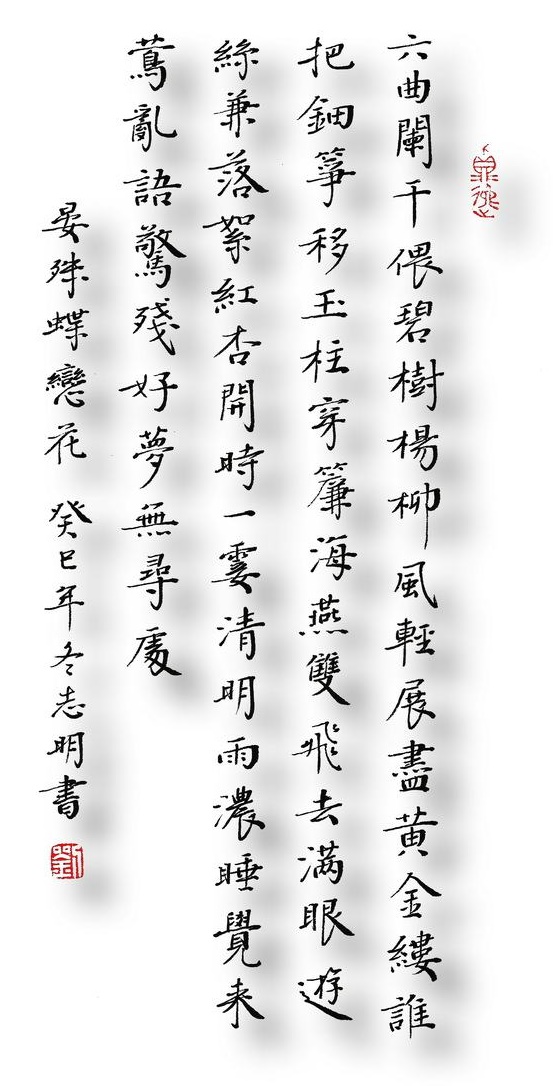 六曲闌干偎碧樹楊柳風輕展盡黄金縷誰
把鈿箏移玉柱穿簾海燕雙飛去滿眼遊
絲兼落絮紅杏開時一霎清明雨濃睡覺来
鶯亂語驚殘好夢無尋處
晏殊蝶戀花 癸巳年冬志明書
劉